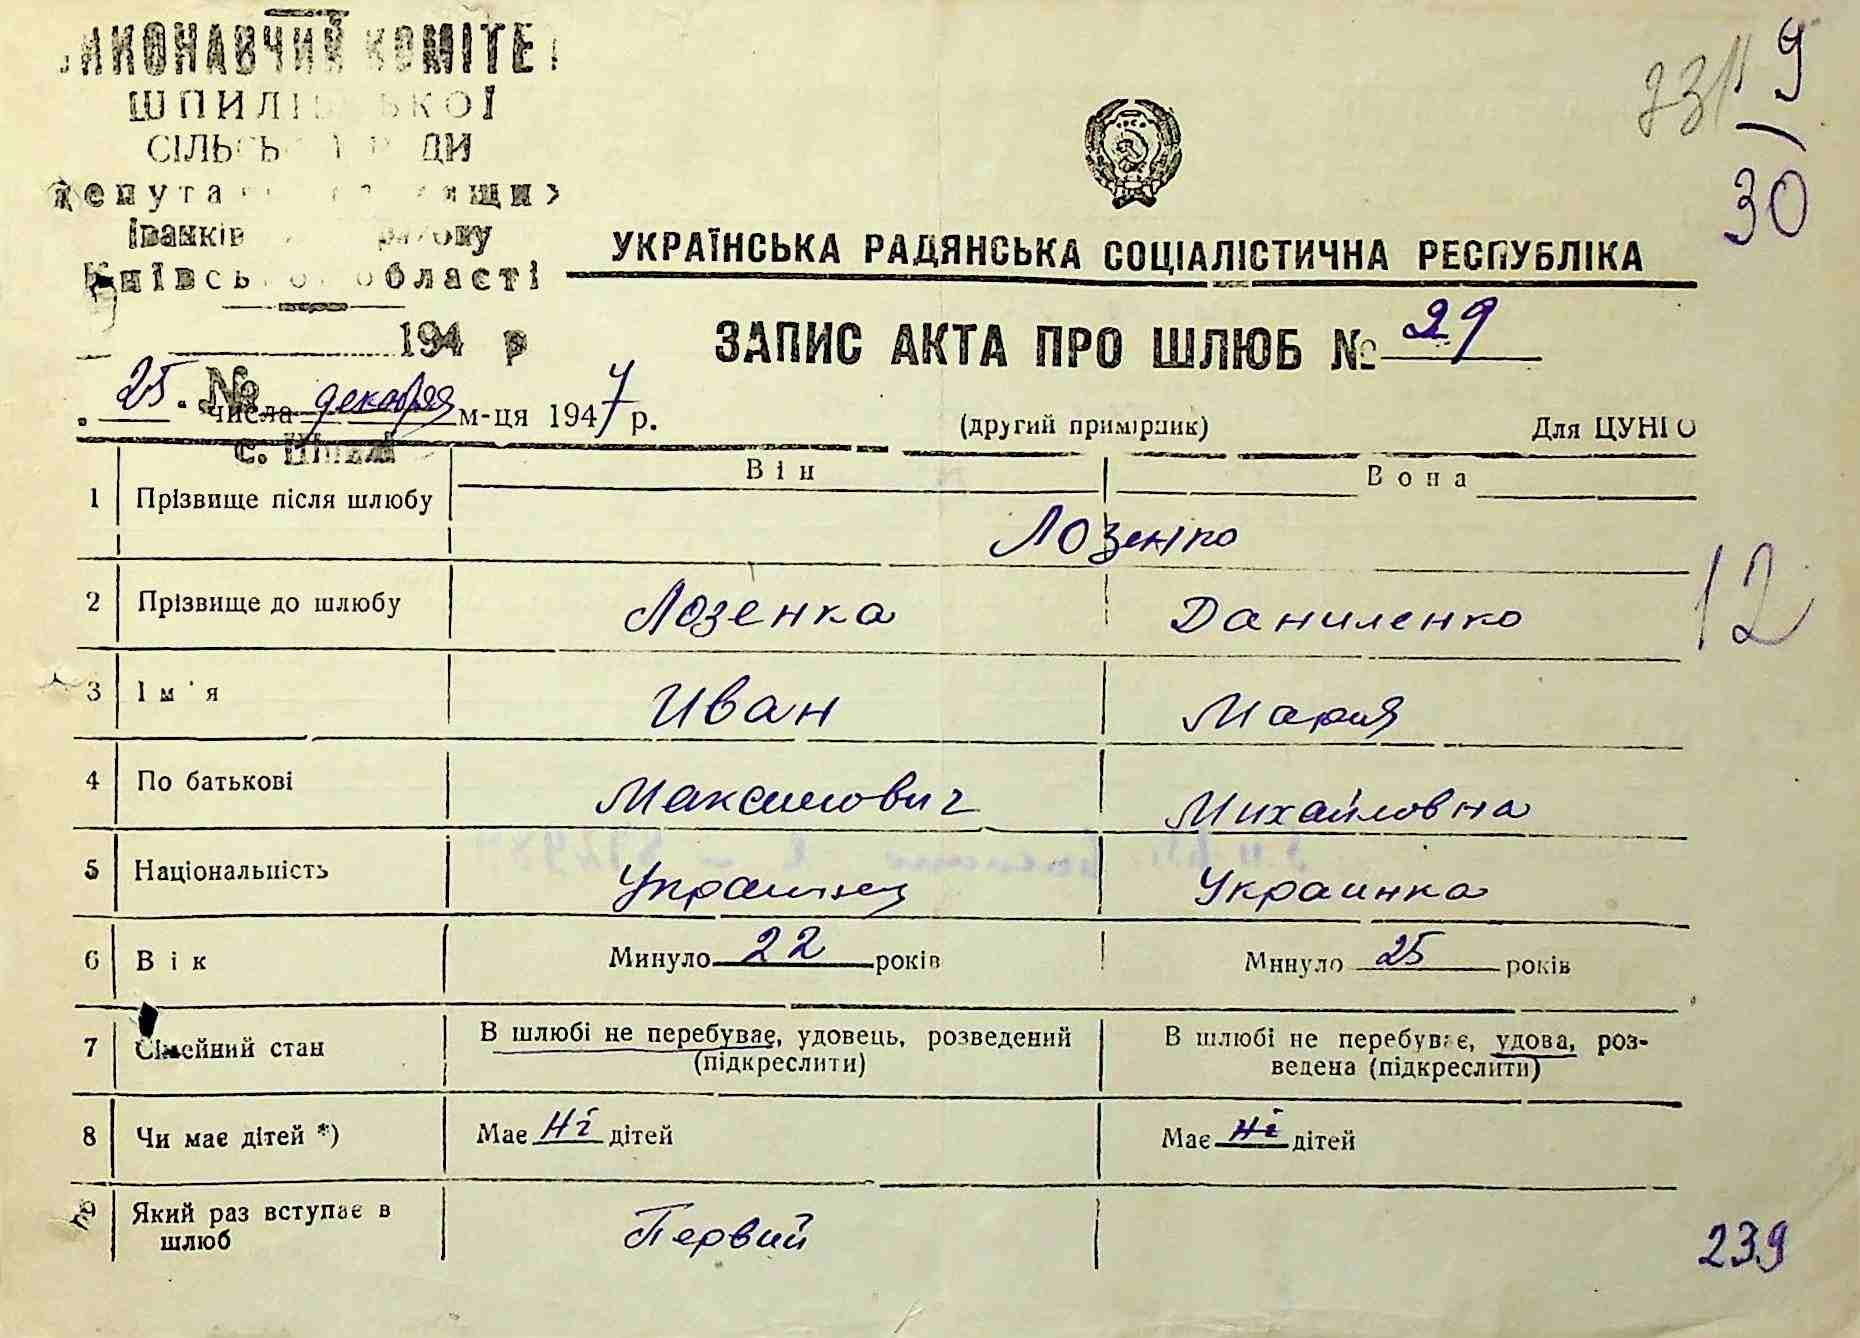 КОМІТЕ
ШПИЛІ КОЇ
СІЛЬ ДИ
депута ящих
Іванків району
Київсь о області
194 р
№
с.
9
30
УКРАЇНСЬКА РАДЯНСЬКА СОЦІАЛІСТИЧНА РЕСПУБЛІКА
ЗАПИС АКТА ПРО ШЛЮБ № 29
25 числа декабря м-ця 1947 р.
(другий примірник) Для ЦУНГО
Він Вона
1 Прізвище після шлюбу Лозенко
2 Прізвище до шлюбу Лозенка Даниленко
12
3 Ім'я Иван Мария
4 По батькові Максимович Михайловна
5 Національність Украинец Украинка
6 Вік Минуло 22 років Минуло 25 років
7 Сімейний стан В шлюбі не перебуває, удовець, розведений (підкреслити) В шлюбі не перебуває, удова, роз-
ведена (підкреслити)
8 Чи має дітей *) Має Ні дітей Має Ні дітей
Який раз вступає в шлюб Первий
239